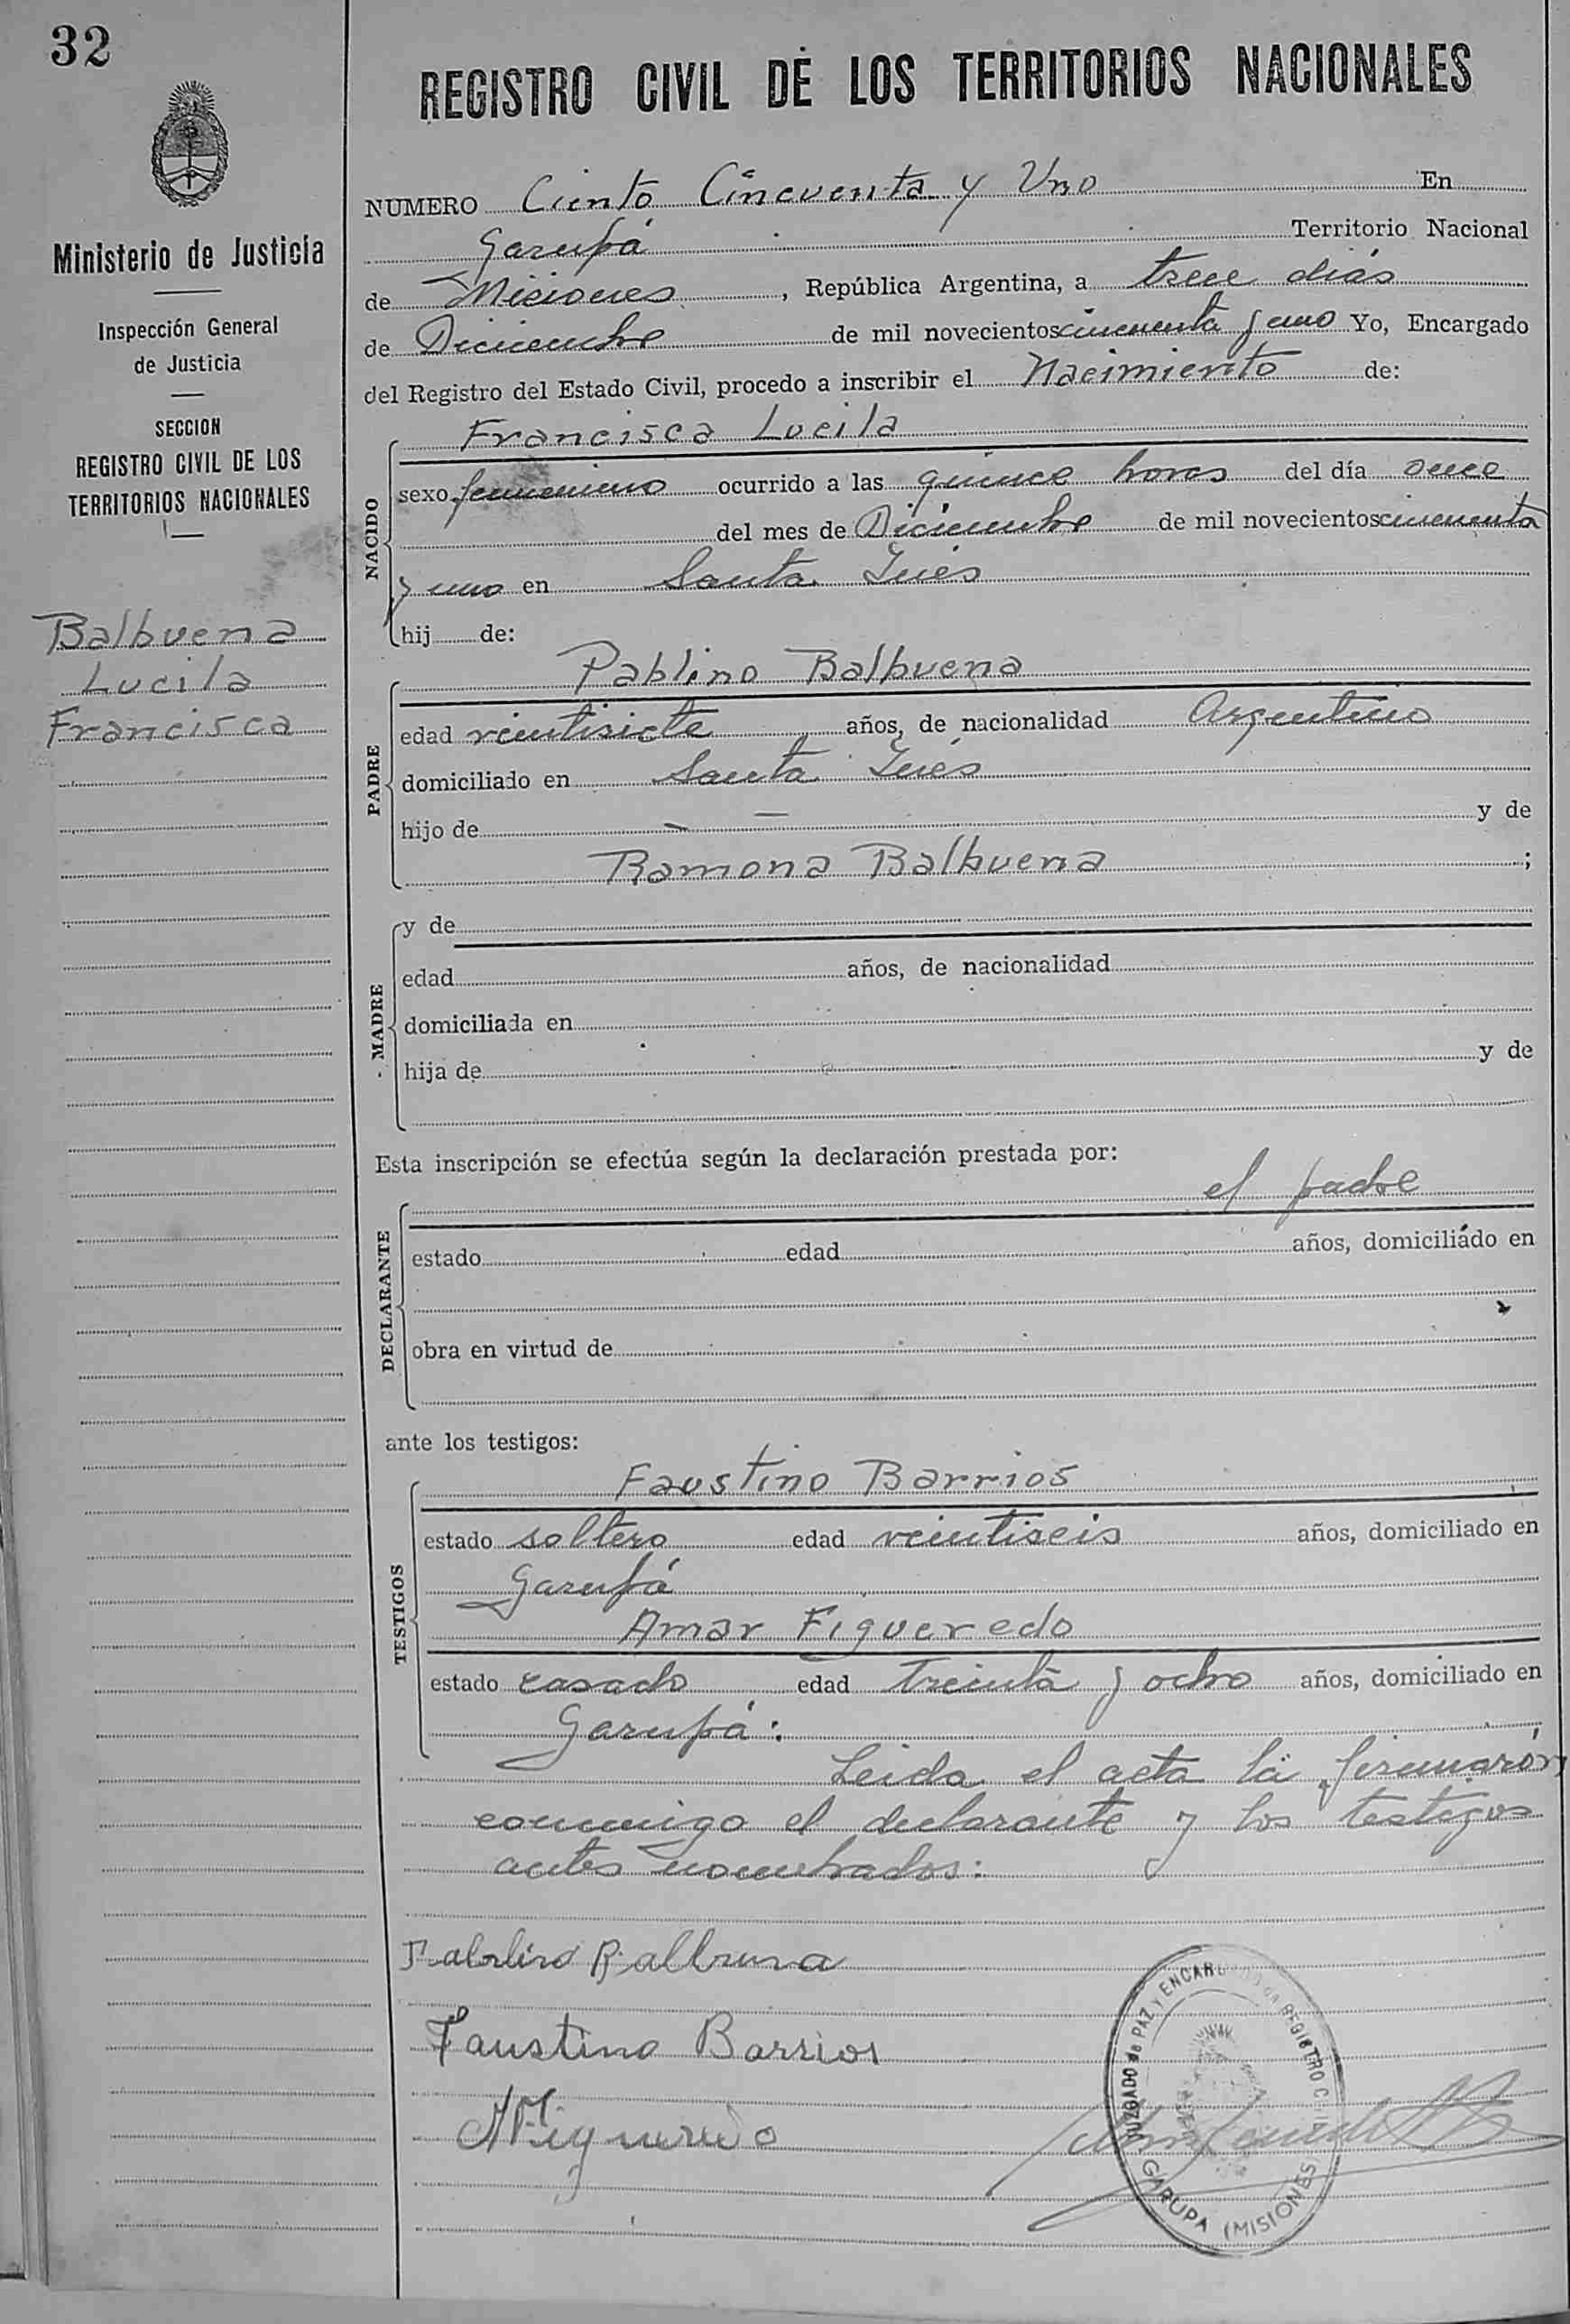 32
REGISTRO CIVIL DE LOS TERRITORIOS NACIONALES
Ministerio de Justicia
Inspección General
de Justicia
SECCION
REGISTRO CIVIL DE LOS
TERRITORIOS NACIONALES
Balbuena
Lucila
Francisca
NUMERO Ciento Cincuenta y Uno En
Garupá Territorio Nacional
de Misiones, República Argentina, a trece dias
de Diciembre de mil novecientos cincuenta y uno Yo, Encargado
del Registro del Estado Civil, procedo a inscribir el Nacimiento de:
NACIDO
Francisca Lucila
sexo femenino ocurrido a las quince horas del día once
del mes de Diciembre de mil novecientos cincuenta
y uno en Santa Inés
hij de:
PADRE
Pablino Balbuena
edad veintisiete años, de nacionalidad Argentino
domiciliado en Santa Inés
hijo de — — y de
Ramona Balbuena ;
MADRE
y de
edad años, de nacionalidad
domiciliada en
hija de y de
Esta inscripción se efectúa según la declaración prestada por:
DECLARANTE
el padre
estado edad años, domiciliado en
obra en virtud de
ante los testigos:
TESTIGOS
Faustino Barrios
estado soltero edad veintiseis años, domiciliado en
Garupá
Amar Figueredo
estado casado edad treinta y ocho años, domiciliado en
Garupá:
Leida el acta la firmarón
conmigo el declarante y los testigos
antes nombrados:
Pablino Balbuena
Faustino Barrios
AFigueredo
JUZGADO de PAZ y ENCARGADO REGISTRO
GARUPA (MISIONES